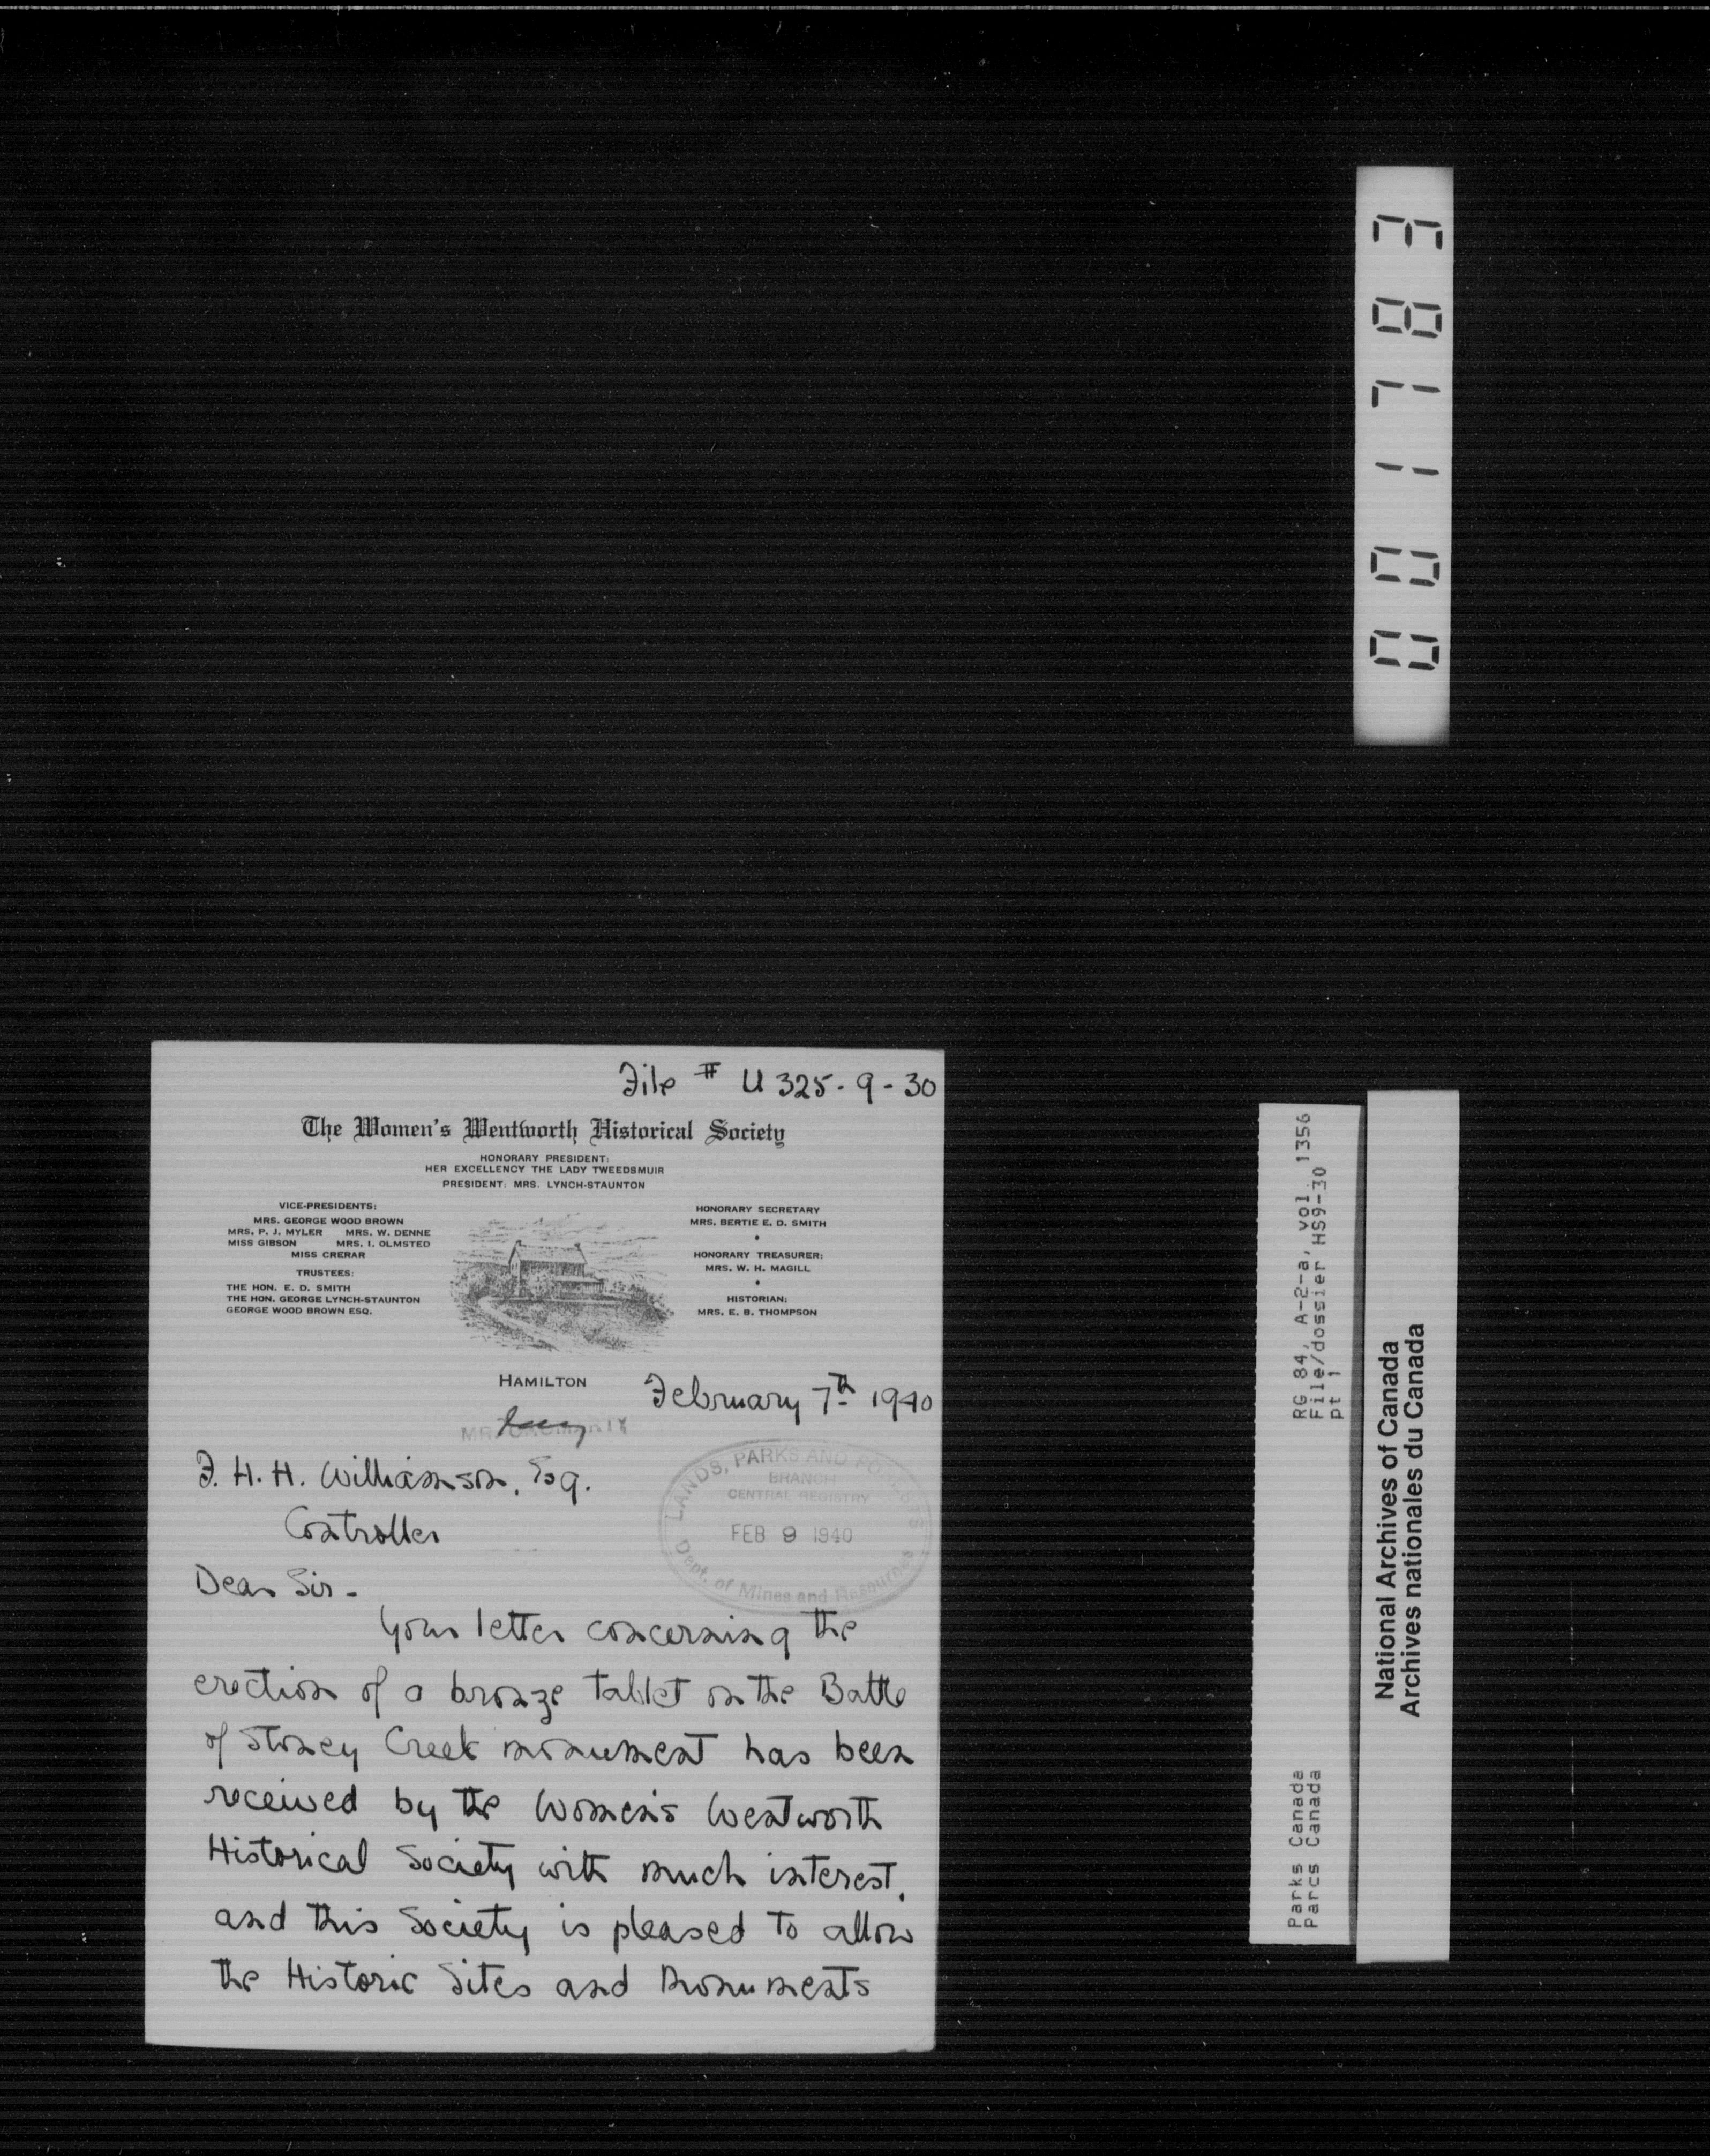 File # U 325-9-30
The Women's Wentworth Historical Society
HONORARY PRESIDENT:
HER EXCELLENCY THE LADY TWEEDSMUIR
PRESIDENT: MRS. LYNCH-STAUNTON
VICE-PRESIDENTS:
MRS. GEORGE WOOD BROWN
MRS. P. J. MYLER MRS. W. DENNE
MISS GIBSON MRS. I. OLMSTED
MISS CRERAR
TRUSTEES:
THE HON. E. D. SMITH
THE HON. GEORGE LYNCH-STAUNTON
GEORGE WOOD BROWN ESQ.
HONORARY SECRETARY
MRS. BERTIE E. D. SMITH
HONORARY TREASURER:
MRS. W. H. MAGILL
HISTORIAN:
MRS. E. B. THOMPSON
HAMILTON
February 7th 1940
F. H. H. Williamson, Esq.
Controller
LANDS, PARKS AND FORESTS
BRANCH
CENTRAL REGISTRY
FEB 9 1940
Dept. of Mines and Resources
Dear Sir-
Your letter concerning the
erection of a bronze tablet on the Battle
of Stoney Creek monument has been
received by the Women's Wentworth
Historical Society with much interest,
and this Society is pleased to allow
the Historic Sites and Monuments
001783
RG 84, A-2-a, vol. 1356
File/dossier HS9-30
pt 1
Parks Canada
Parcs Canada
National Archives of Canada
Archives nationales du Canada